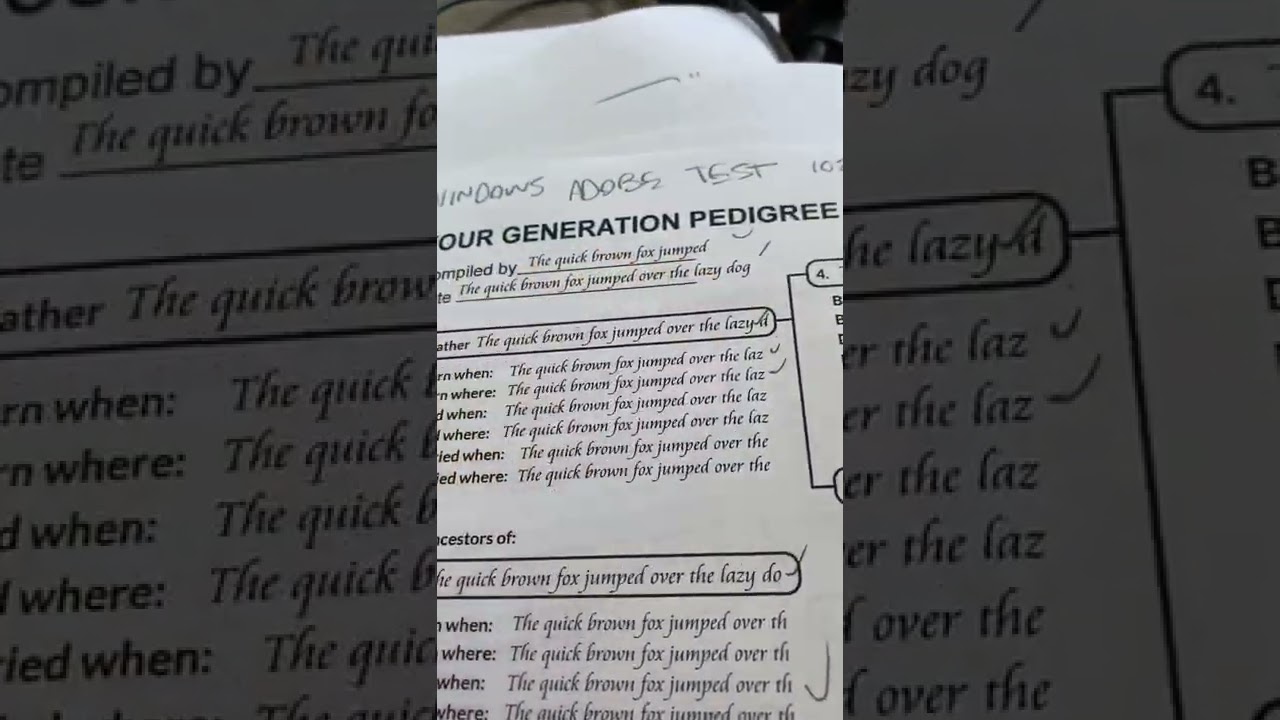 WINDOWS ADOBE TEST 102
OUR GENERATION PEDIGREE
ompiled by The quick brown fox jumped
te The quick brown fox jumped over the lazy dog
4.
ather The quick brown fox jumped over the lazy d
rn when: The quick brown fox jumped over the laz
rn where: The quick brown fox jumped over the laz
d when: The quick brown fox jumped over the laz
d where: The quick brown fox jumped over the laz
ried when: The quick brown fox jumped over the
ied where: The quick brown fox jumped over the
ncestors of:
he quick brown fox jumped over the lazy do
n when: The quick brown fox jumped over th
where: The quick brown fox jumped over th
when: The quick brown fox jumped over th
where: The quick brown fox jumped over th